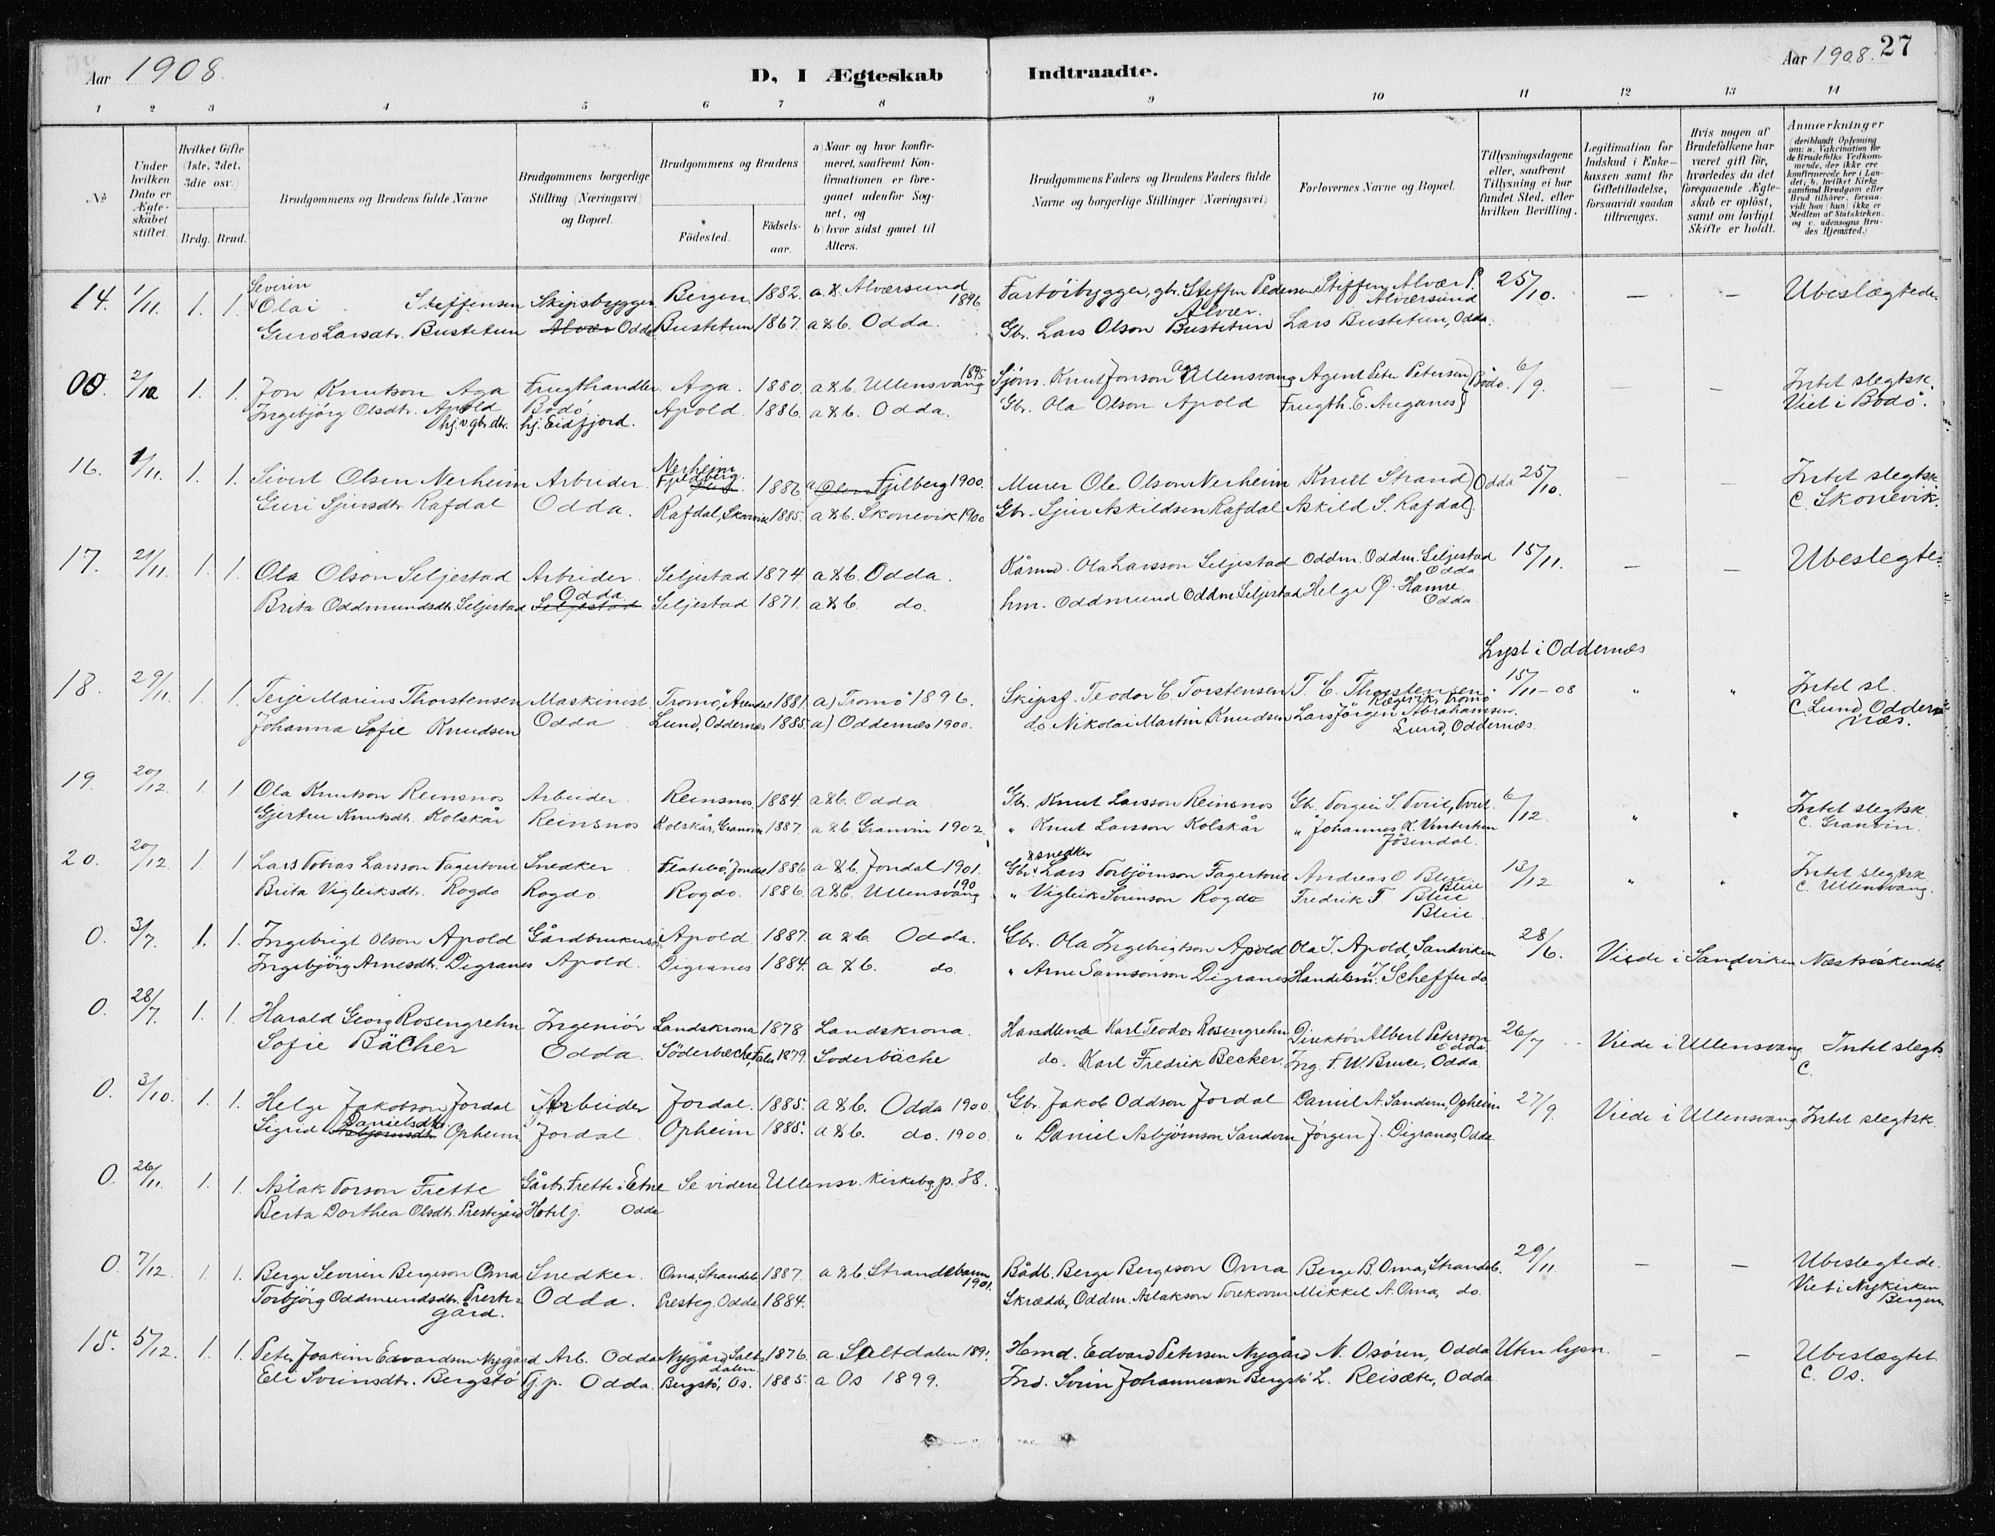 Aar 1908.
D, I Ægteskab Indtraadte.
Aar 1908. 27
1 2 3 4 5 6 7 8 9 10 11 12 13 14
No
Under hvilken Dato er Ægteskabet stiftet.
Hvilket Gifte (1ste, 2det, 3die osv.)
Brdg. Brud.
Brudgommens og Brudens fulde Navne
Brudgommens borgerlige Stilling (Næringsvei) og Bopæl.
Brudgommens og Brudens
Födested.
Födselsaar.
a) Naar og hvor konfirmeret, saafremt Konfirmationen er foregaaet udenfor Sognet, og
b) hvor sidst gaaet til Alters.
Brudgommens Faders og Brudens Faders fulde Navne og borgerlige Stillinger (Næringsvei)
Forlovernes Navne og Bopæl.
Tillysningsdagene eller, saafremt Tillysning ei har fundet Sted, efter hvilken Bevilling.
Legitimation for Indskud i Enkekassen samt for Giftetilladelse, forsaavidt saadan tiltrænges.
Hvis nogen af Brudefolkene har været gift för, hvorledes da det foregaaende Ægteskab er oplöst, samt om lovligt Skifte er holdt.
Anmærkninger
14. 1/11. 1. 1. Severin Olai Steffensen Skipsbygger Bergen 1882. a. & Alværsund 1896 Fartöibygger, gbr. Steffen Pedersen Alvær. Steffen Alvær P. Alværsund 25/10. — — Ubeslægtede
Guro Larsdtr. Bustetun Alvær Odda Bustetun 1867. a & b. Odda. Gbr. Lars Olson Bustetun Lars Bustetun, Odda.
00. 2/10 1. 1. Jon Knutson Aga Frugthandler Aga. 1880. a & b. Ullensvang 1895 Sjöm. Knut Jonson Aga Ullensvang Agent Peter Petersen Bodö. 6/9. — — Intet slegtsk.
Ingebjörg Olsdtr. Apold Bodö Apold. 1886. a & b. Odda. Gbr. Ola Olson Apold Frugth. E. Auganes Viet i Bodö.
hj. v. gbr. dtr. hj. Eidfjord.
16. 1/11. 1. 1. Sivert Olsen Nerheim Arbeider Nerheim Fjeldberg. 1886 Fjelberg 1900. Murer Ole Olson Nerheim Knut Strand Odda 25/10. — — Intet slegtsk
Guri Sjursdtr. Rafdal Odda. Rafdal, Skonevik 1885. a & b. Skonevik 1900 Gbr. Sjur Askildsen Rafdal Askild S. Rafdal C. Skonevik.
17. 21/11. 1. 1. Ola Olson Seljestad Arbeider. Seljestad 1874 a & b. Odda. Kårmd. Ola Larsson Seljestad Oddm. Oddm. Seljestad Odda 15/11. — — Ubeslegte
Brita Oddmundsdtr. Seljestad Odda Seljestad Seljestad 1871. a & b. do. hm. Oddmund Oddm Seljestad Helge Ø. Hamre Odda
Lyst i Oddernæs
18. 29/11. 1. 1. Terje Marius Thorstensen Maskinist Tromö, Arendal 1881. a) Tromö 1896. Skipsf. Teodor C. Torstensen T. C. Thorstensen Tromö 15/11-08 " " Intet sl.
Johanna Sofie Knudsen Odda Lund, Oddernes 1885. a) Oddernes 1900. do. Nikolai Martin Knudsen Lars Jörgen Abrahamsen. Lund, Oddernæs. C. Lund, Oddernæs.
19. 20/12. 1. 1 Ola Knutson Reinsnos Arbeider. Reinsnos. 1884 a & b. Odda Gbr. Knut Larsson Reinsnos Gb. Torgeir S. Tveit, Tveit. 6/12. " " Intet slegtsk.
Gjertru Knutsdtr. Kolskår Reinsnos Kolskår, Granvin 1887. a & b. Granvin 1902. " Knut Larsson Kolskår " Johannes K. Vintertun Jösendal. C. Granvin.
20. 20/12 1. 1 Lars Tobias Larsson Fagertveit Snedker Flatebö, Jondal 1886 a & b. Jondal 1901. Gbr. & snedker Lars Torbjörnson Fagertveit Andreas O Bleie Bleie 13/12 " " Intet slegtsk
Brita Vigleiksdtr. Rogdo Rogdo Rogdo. 1886. a & b. Ullensvang 190 " Vigleik Sveinson Rogdo Fredrik T Bleie Bleie. C. Ullensvang.
0. 3/7. 1. 1. Ingebrigt Olson Apold Gårdbruker Apold 1887. a & b. Odda. Gbr. Ola Ingebrigtson Apold Ola I. Apold, Sandviken 28/6. Viede i Sandviken Næstsöskendeb.
Ingebjörg Arnesdtr. Digranes Apold. Digranes 1884. a & b. do. " Arne Samsonson Digranes Handelsm. I. Scheffer do
0. 28/7. 1. 1. Harald Georg Rosengrehn Ingeniör Landskrona 1878 Landskrona. Handlende Karl Teodor Rosengrehn Direktör Albert Peterson Odda 26/7 Viede i Ullensvang Intet slegts
Sofie Bächer Odda. Söderbæche, 1879. Söderbäche do. Karl Fredrik Becker. Ing. F. W. Bruce, Odda C.
0. 3/10. 1. 1. Helge Jakobson Jordal Arbeider Jordal. 1885. a & b. Odda 1900. Gbr. Jakob Oddson Jordal Daniel A. Sandven, Opheim 27/9. Viede i Ullensvang Intet slegtsk
Sigrid Danielsdtr. Asbjörnsdtr. Opheim Jordal. Opheim 1885. a & b. do. 1900. " Daniel Asbjörnson Sandven Jörgen J. Digranes, Odda
0. 26/11. 1. 1. Aslak Torson Frette Gårbr. Frette i Etne Se videre Ullensv. Kirkebog p. 38.
Berta Dorthea Olsdtr. Prestegård Hotelg. Odda
0. 7/12. 1. 1. Berge Severin Bergeson Oma Snedker. Oma, Strandeb. 1887. a & b. Strandebarm 1901. Bådb. Berge Bergeson Oma Berge B. Oma, Strandeb. 29/11. — — Ubeslegtede.
Torbjörg Oddmundsdtr. Prestegård. Odda. Presteg. Odda 1884. Skrædder Oddm. Aslakson Mikkel A. Oma, do. Viet i Nykirken Bergen
15. 5/12. 1. 1. Peter Joakim Edvardsen Nygård Arb. Odda Nygård, Saltdalen 1876. a. Saltdalen 1891. Hemd. Edvard Petersen Nygård N. Osören, Odda Uten lysn. — — Ubeslægtet
Eli Sveinsdtr. Bergstö Gp. Odda Bergstö, Os. 1885. a Os 1899. Ind. Svein Johanneson Bergstö L. Reisæter, Odda. C. Os.